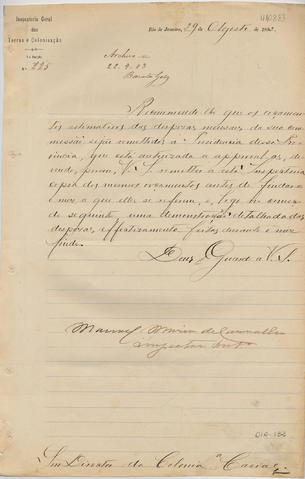 Inspectoria Geral
das
Terras e Colonisação
Nº 225
Rio de Janeiro, 29 de Agosto de 1883.
A10883
Archive-se
22-9-83
Recommendo-lhe que os orçamen-
tos estimativos das despezas mensaes da sua com-
missão sejão remettidos á Presidencia dessa Pro-
vincia, que está autorizada a approval-as, de-
vendo, porém, V. S. remetter a esta Inspectoria
copia dos mesmos orçamentos antes de findar o
mez a que elles se refirão, e, logo no come-
ço do seguinte, uma demonstração detalhada das
despezas effectivamente feitas durante o mez
findo.
Deus Guarde a V. S.
Manoel Maria de Carvalho
Inspector
Snr. Director da Colonia Caxias